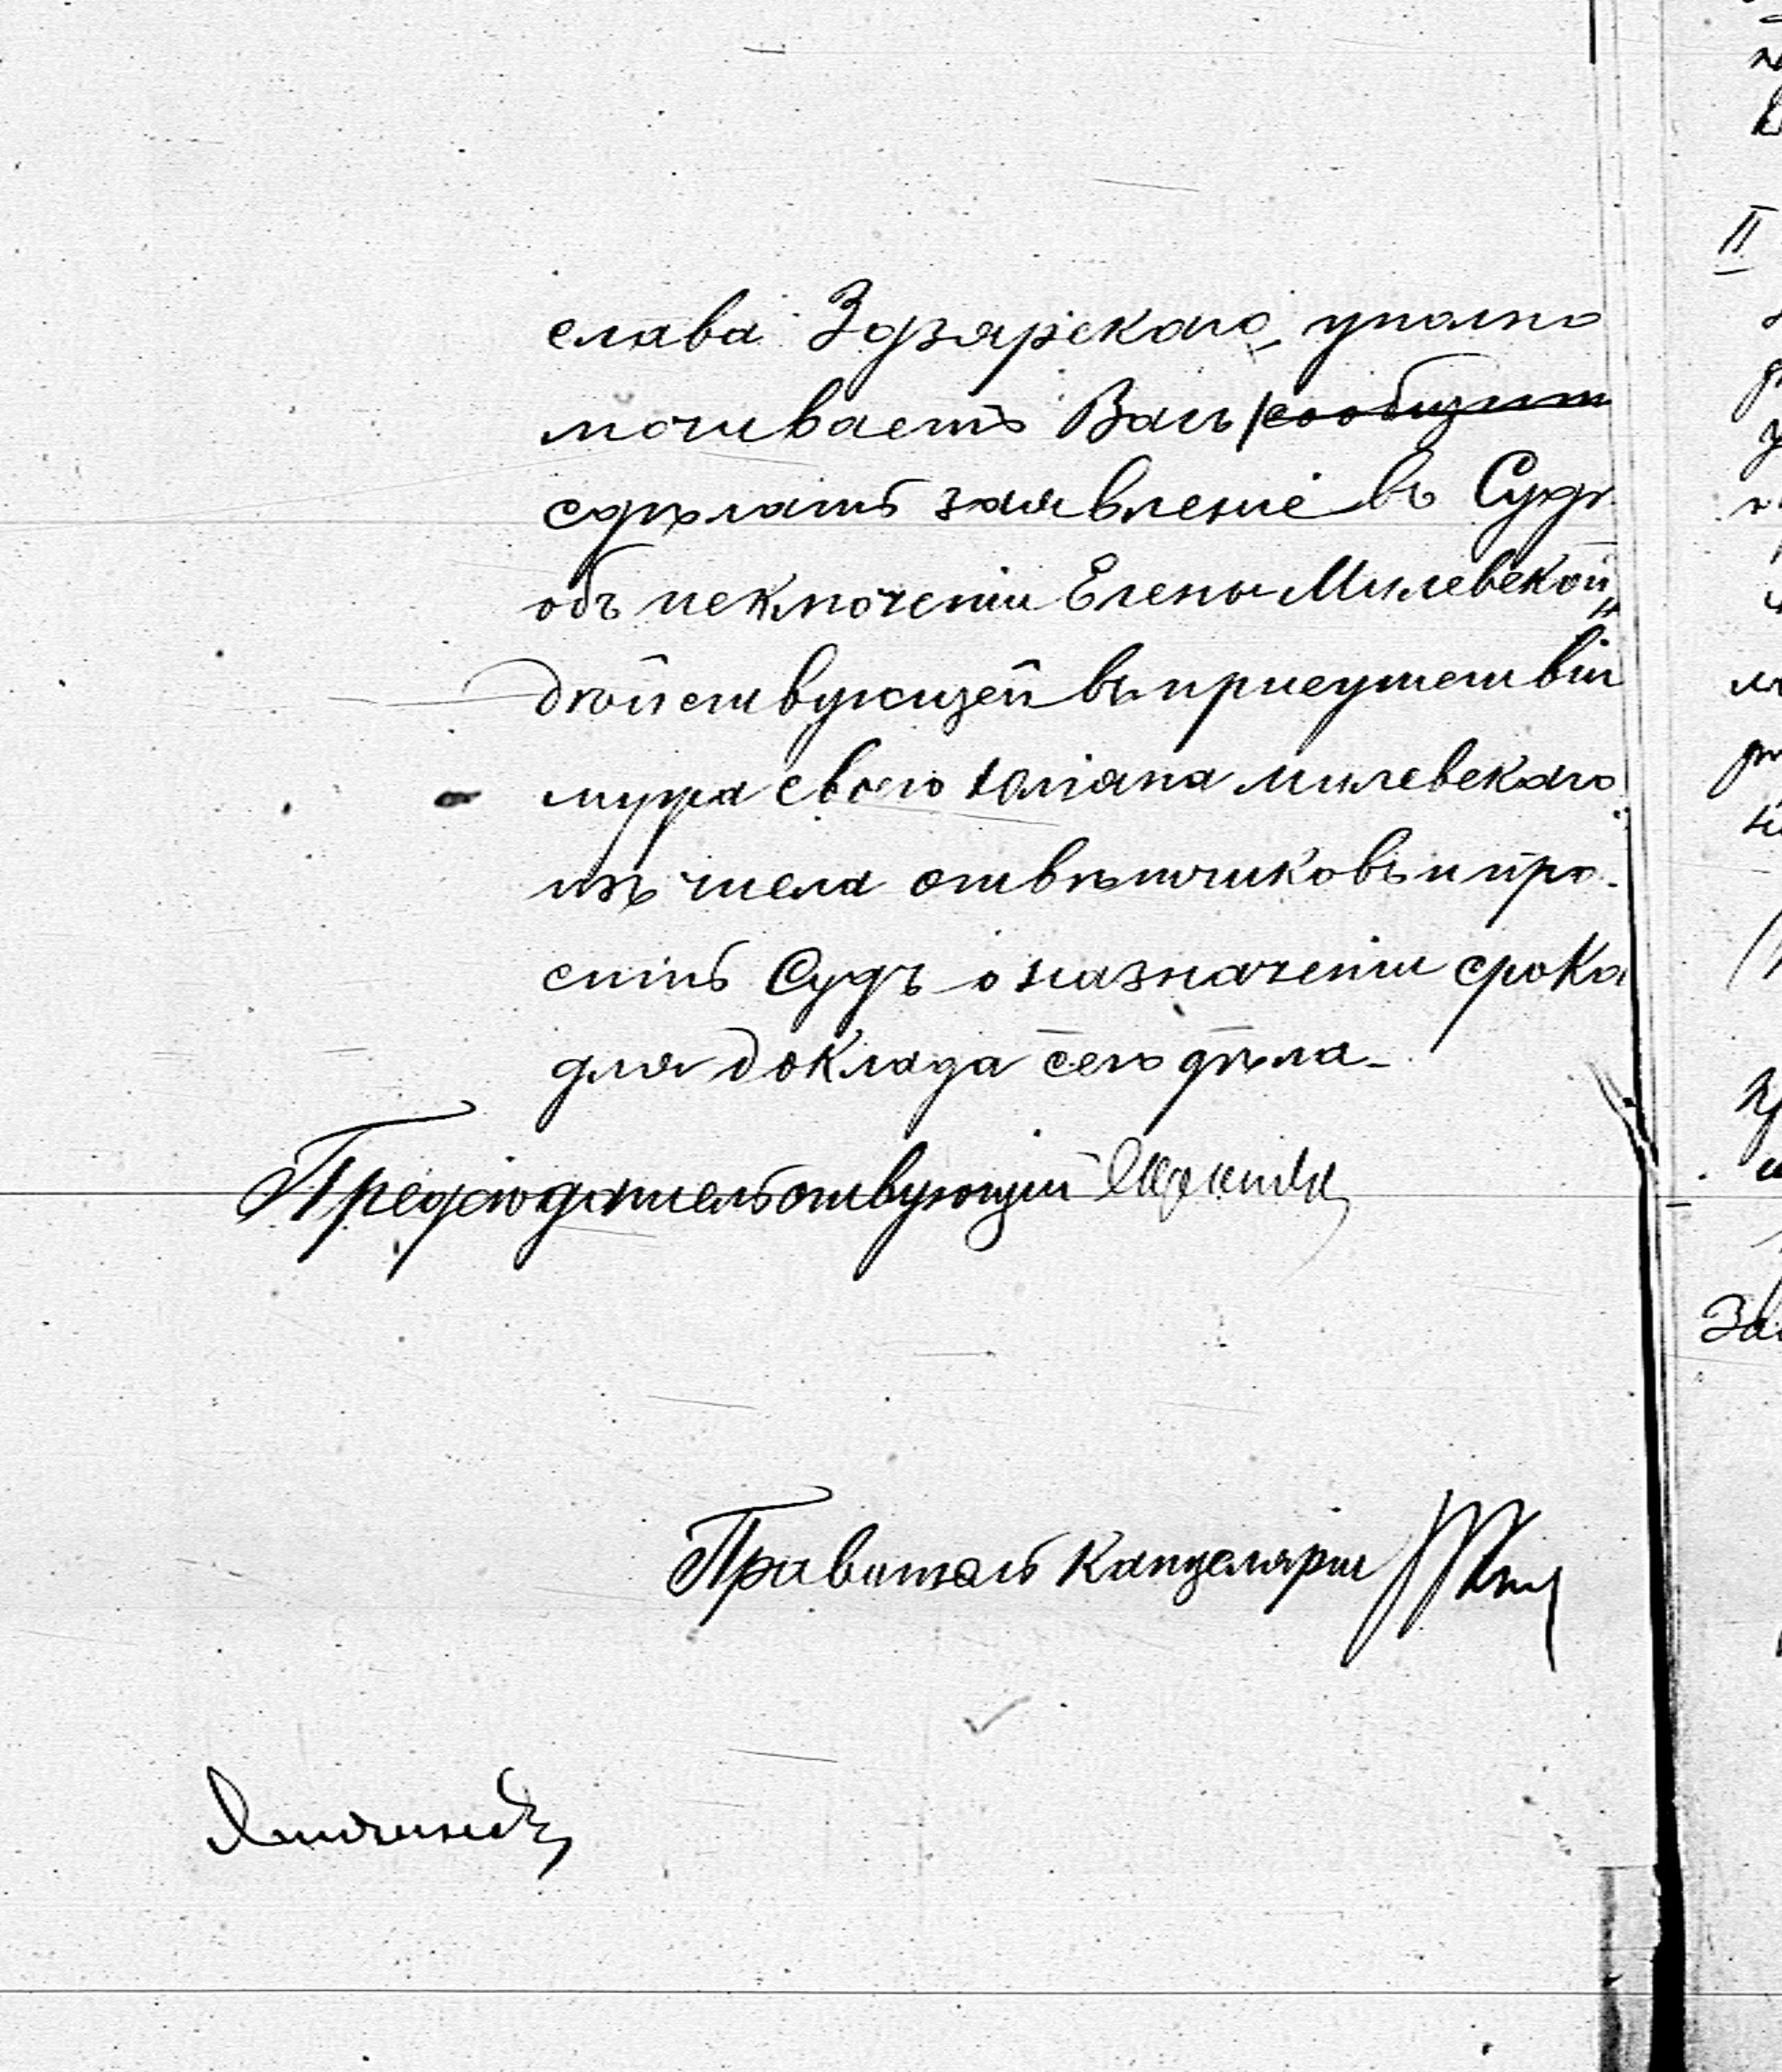 слава Здзярскаго, уполно
мочиваетъ Васъ сообщит
сдѣлать заявленіе въ Судъ
объ исключеніи Елены Милевской,
дѣйствующей въ присутствіи
мужа своего Юліана Милевскаго
изъ числа отвѣтчиковъ и про-
сить Судъ о назначеніи срока
для доклада сего дѣла.
Предсѣдательствующій
Правитель Канцеляріи
II